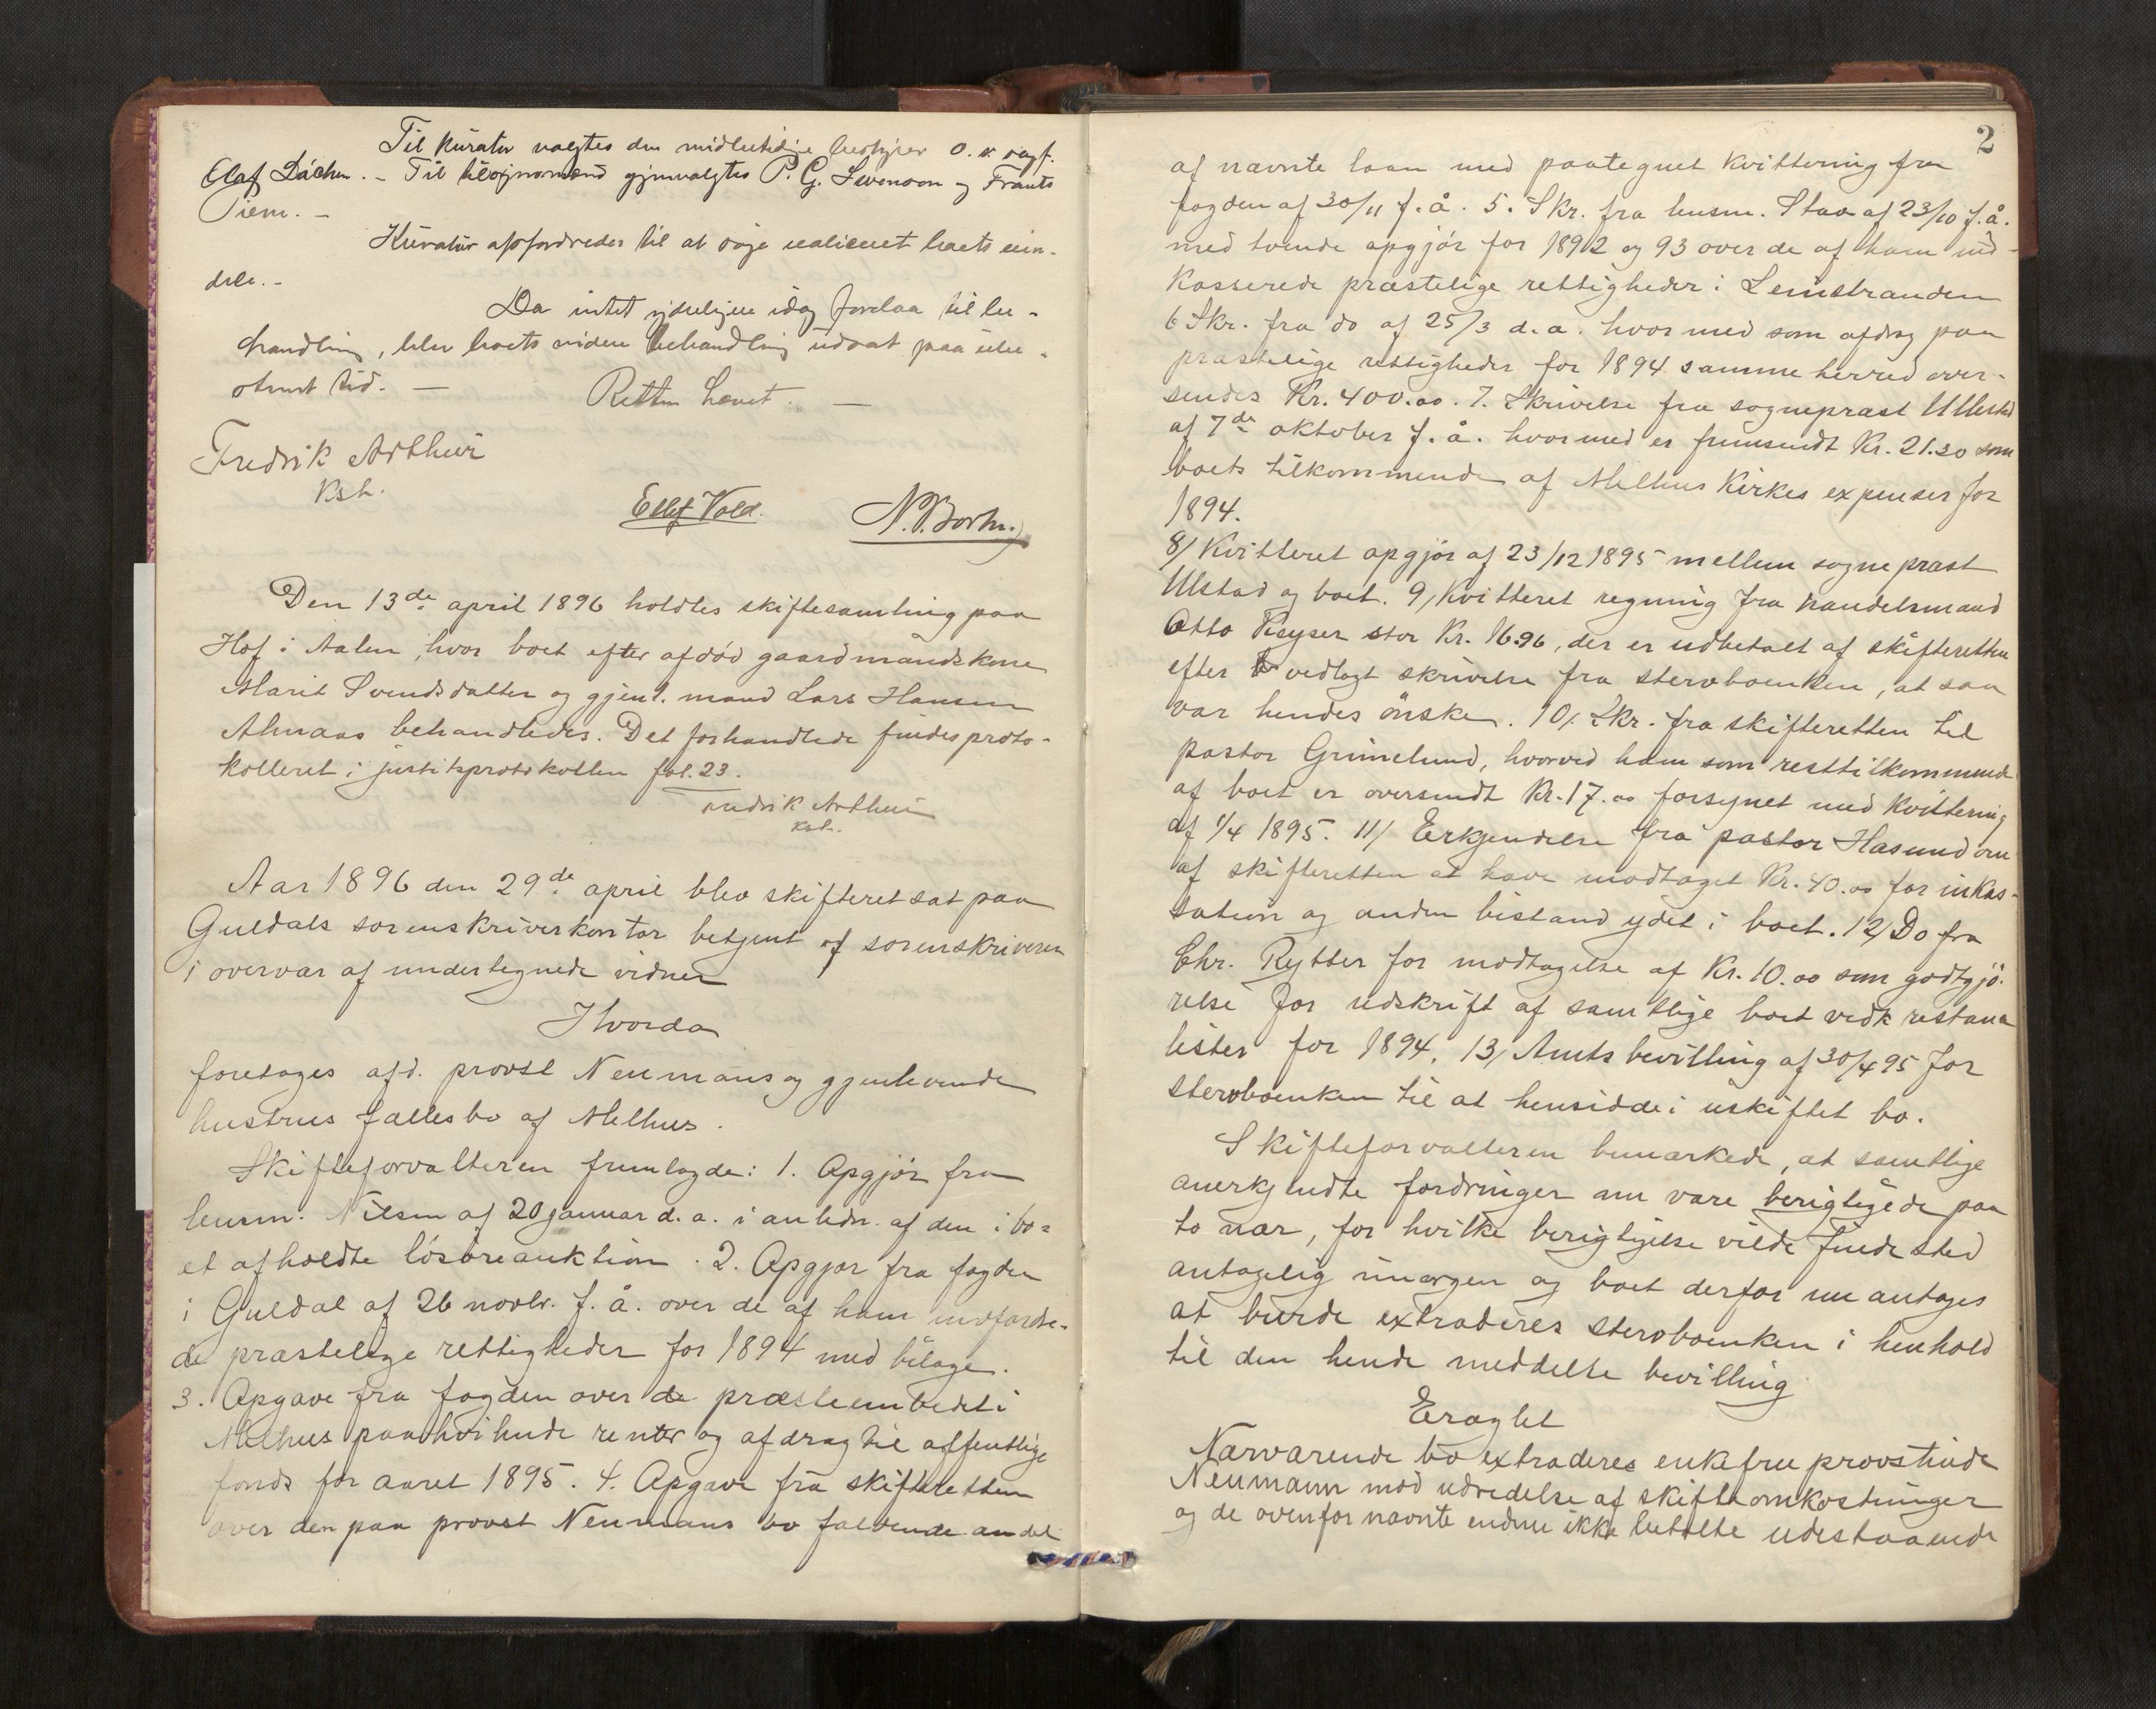 Til kurator valgtes den midlertidige bestyrer o. r. sagf.
Olaf Dáchn. - Til tilsynsmænd gjenvalgtes P. G. Svenson og Frants
Kurator opfordredes til at søge realiseret boets eien-
dele. -
Da intet yderligere idag forelaa til be-
handling, blev boets videre behandling udsat paa ube-
stemt tid. -
Retten hævet. -
Fredrik Arthur
Kst.
Ellef Vold. N. P. Borten.
Den 13de april 1896 holdtes skiftesamling paa
Hof i Aalen, hvor boet efter afdød gaardmandskone
Marit Svendsdatter og gjenl. mand Lars Hansen
Almaas behandledes. Det forhandlede findes proto-
kolleret i justitsprotokollen fol. 23.
Fredrik Arthur
Kst.
Aar 1896 den 29de april blev skifteret sat paa
Guldals sorenskriverkontor betjent af sorenskriveren
i overvær af undertegnede vidner
Hvorda
foretoges afd. provst Neumans og gjenlevende
hustrus fællesbo af Melhus.
Skifteforvalteren fremlagde: 1. Opgjør fra
lensm. Nilsen af 20 januar d. a. i anledn. af den i bo=
et afholdte løsøreauktion. 2. Opgjør fra fogden
i Guldal af 26 novbr. f. å. over de af ham indfordre-
de præstelige rettigheder for 1894 med bilage.
3. Opgave fra fogden over de præsteembedet i
Melhus paahvilende renter og afdrag til offentlige
fonds for aaret 1895. 4. Opgave fra skifteretten
over den paa provst Neumans bo faldende andel
2
af nævnte laan med paategnet kvittering fra
fogden af 30/11 f. å. 5. Skr. fra lensm. Stav af 23/10 f. å.
med tvende opgjør for 1892 og 93 over de af ham ind-
kasserede præstelige rettigheder i Leinstranden
6 Skr. fra do af 25/3 d. a. hvormed som afdrag paa
præstelige rettigheder for 1894 samme herred over-
sendes Kr. 400.00. 7. Skrivelse fra sognepræst Ullestad
af 7de oktober f. å. hvormed er fremsendt Kr. 21.20 som
boets tilkommende af Melhus Kirkes expenser for
1894.
8/ Kvitteret opgjør af 23/12 1895 mellem sognepræst
Ulstad og boet. 9, Kvitteret regning fra handelsmand
Otto Keyser stor Kr. 16.96, der er udbetalt af skifteretten
efter vedlagt skrivelse fra stervboenken, at saa
var hendes ønske. 10/. Skr. fra skifteretten til
pastor Grimelund, hvorved ham som resttilkommende
af boet er oversendt Kr. 17.00 forsynet med kvittering
af 1/4 1895. 11/ Erkjendelse fra pastor Hasund om
af skifteretten at have modtaget Kr. 40.00 for inkas-
sation og anden bistand ydet i boet. 12/ Do fra
Chr. Rytter for modtagelse af Kr. 10.00 som godtgjø-
relse for udskrift af samtlige boet vedk restance
lister for 1894. 13, Amtsbevilling af 30/4 95 for
stervboenken til at hensidde i uskiftet bo.
Skifteforvalteren bemærkede, at samtlige
anerkjendte fordringer nu vare berigtigede paa
to nær, for hvilke berigtigelse vilde finde sted
antagelig imorgen og boet derfor nu antoges
at burde extraderes stervboenken i henhold
til den hende meddelte bevilling
Eragtet
Nærværende bo extraderes enkefru provstinde
Neumann mod udredelse af skifteomkostninger
og de ovenfor nævnte endnu ikke betalte udestaaende